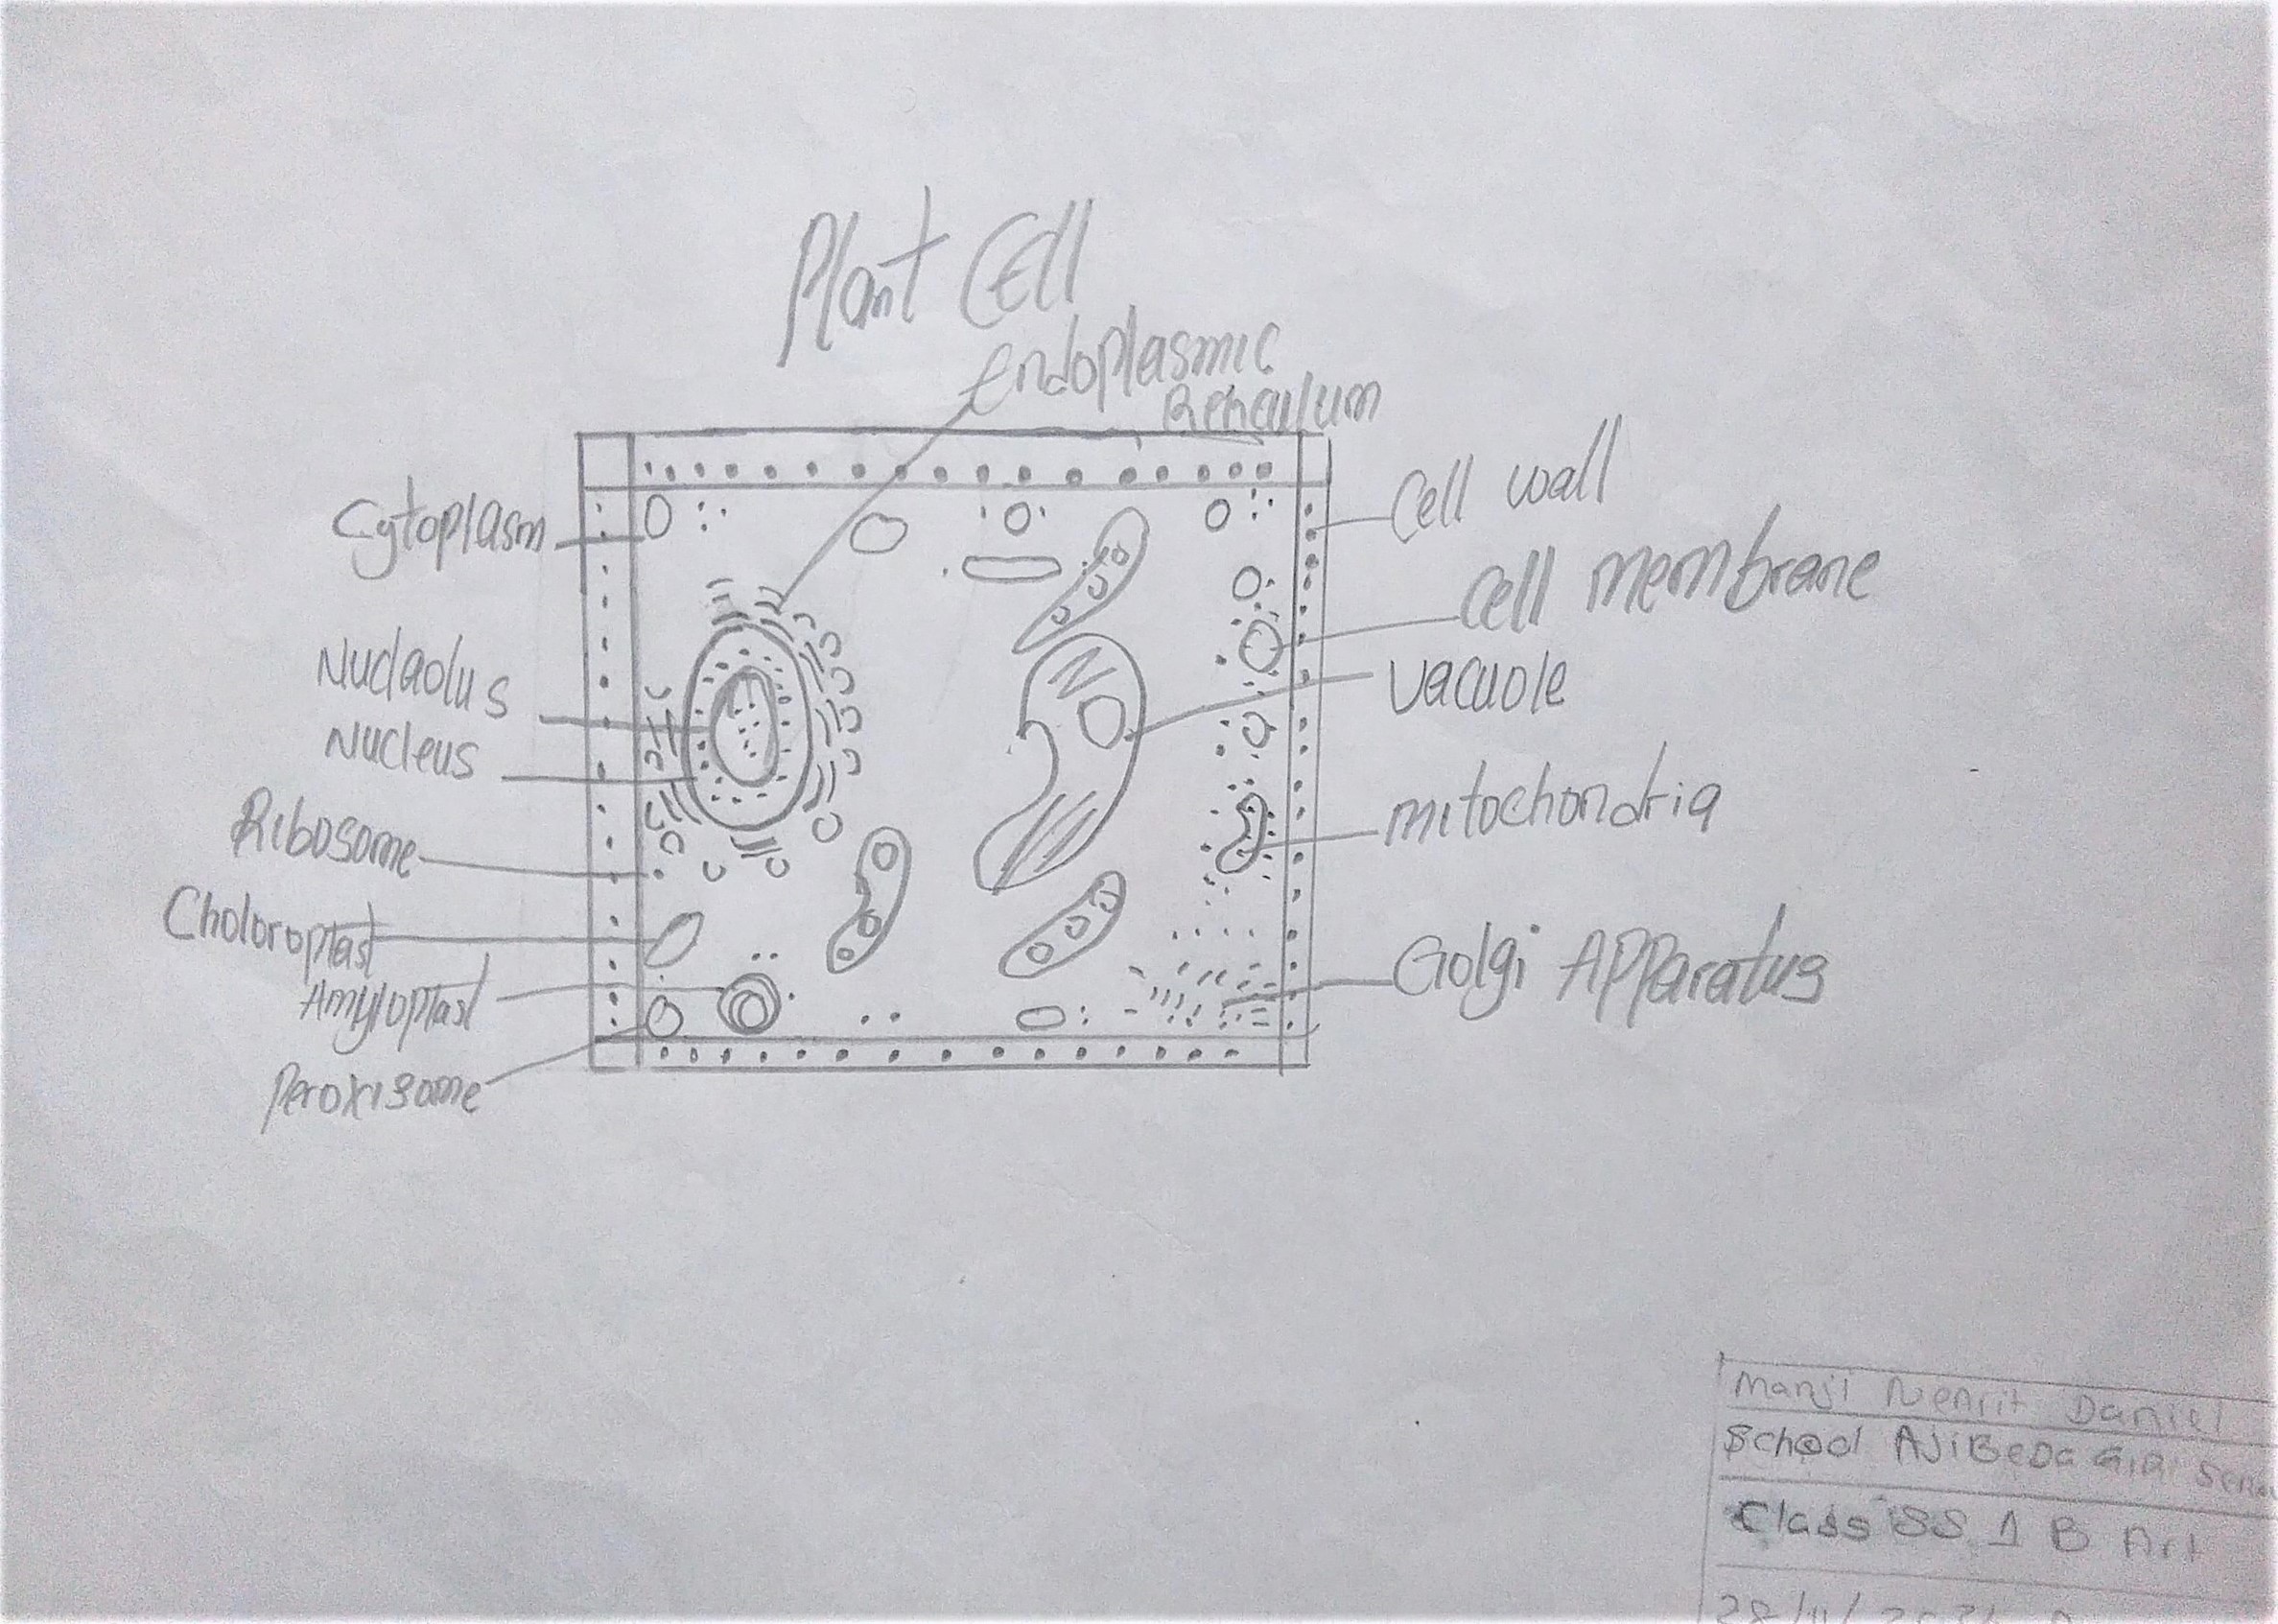 Plant Cell
Endoplasmic
Reticulum
Cytoplasm
Nuclaolus
Nucleus
Ribosome
Choloroplast
Amyloplast
Peroxisome
Cell wall
Cell membrane
Vacuole
Mitochondria
Golgi Apparatus
Manji Nenrit Daniel
School AJiBeDa
Class SS 1 B Art
28/11/